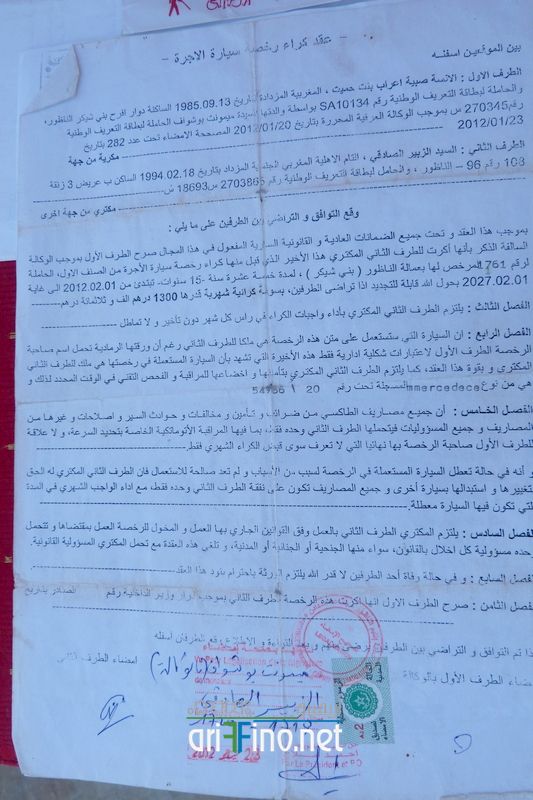 - عقد كراء رخصة سيارة الاجرة -
بين الموقعين اسفله
الطرف الاول : الانسة صبية اعراب بنت حميت ، المغربية المزدادة بتاريخ 1985.09.13 الساكنة دوار افرح بني شيكر الناظور،
والحاملة لبطاقة التعريف الوطنية رقم SA10134 بواسطة والدتها السيدة ميمونت بوشواف الحاملة لبطاقة التعريف الوطنية
رقم 270345 س بموجب الوكالة العرفية المحررة بتاريخ 2012/01/20 المصححة الامضاء تحت عدد 282 بتاريخ
2012/01/23 مكرية من جهة
الطرف الثاني : السيد الزبير الصادقي ، التام الاهلية المغربي الجنسية المزداد بتاريخ 1994.02.18 الساكن ب عريض 3 زنقة
108 رقم 96 – الناظور ، والحامل لبطاقة التعريف الوطنية رقم
مكتري من جهة اخرى
وقع التوافق و التراضي بين الطرفين على ما يلي :
بموجب هذا العقد و تحت جميع الضمانات العادية و القانونية السارية المفعول في هذا المجال صرح الطرف الأول بموجب الوكالة
السالفة الذكر بأنها أكرت للطرف الثاني المكتري هذا الأخير الذي قبل منها كراء رخصة سيارة الأجرة من الصنف الاول، الحاملة
لرقم 761 المرخص لها بعمالة الناظور ( بني شيكر ) ، لمدة خمسة عشرة سنة -15 سنوات- تبتدئ من 2012.02.01 الى غاية
2027.02.01 بحول الله قابلة للتجديد اذا تراضى الطرفين، بسومة كرائية شهرية قدرها 1300 درهم الف و ثلاثمائة درهم
الفصل الثالث : يلتزم الطرف الثاني المكتري بأداء واجبات الكراء في راس كل شهر دون تأخير و لا تماطل
الفصل الرابع : ان السيارة التي ستستعمل على متن هذه الرخصة هي ملكا للطرف الثاني رغم أن ورقتها الرمادية تحمل اسم صاحبة
الرخصة الطرف الأول لاعتبارات شكلية ادارية فقط هذه الأخيرة التي تشهد بأن السيارة المستعملة في رخصتها هي ملك للطرف الثاني
المكتري و بقوة هذا العقد، كما يلتزم الطرف الثاني المكتري بتأمينها و اخضاعها للمراقبة و الفحص التقني في الوقت المحدد لذلك و
هي من نوع mmercedece المسجلة تحت رقم 20 ا 54766
الفصل الخامس : أن جميع مصاريف الطاكسي من ضرائب و تأمين و مخالفات و حوادث السير و اصلاحات و غيرها من
المصاريف و جميع المسؤوليات فيتحملها الطرف الثاني وحده فقط، بما فيها المراقبة الأتوماتيكية الخاصة بتحديد السرعة، و لا علاقة
للطرف الأول صاحبة الرخصة بها نهائيا التي لا تعرف سوى قبض الكراء الشهري فقط
و أنه في حالة تعطل السيارة المستعملة في الرخصة لسبب من الأسباب و لم تعد صالحة للاستعمال فان الطرف الثاني المكتري له الحق
لتغييرها و استبدالها بسيارة أخرى و جميع المصاريف تكون على نفقة الطرف الثاني وحده فقط، مع اداء الواجب الشهري في المدة
التي تكون فيها السيارة معطلة.
الفصل السادس : يلتزم المكتري الطرف الثاني بالعمل وفق القوانين الجاري بها العمل و المخول للرخصة العمل بمقتضاها و تتحمل
وحده مسؤولية كل اخلال بالقانون، سواء منها الجنحية أو الجنائية أو المدنية، و تلغي هذه العقدة مع تحمل المكتري المسؤولية القانونية.
الفصل السابع : و في حالة وفاة أحد الطرفين لا قدر الله يلتزم الورثة باحترام بنود هذا العقد
الفصل الثامن : صرح الطرف الاول انها اكرت هذه الرخصة للطرف الثاني بموجب قرار وزير الداخلية رقم الصادر بتاريخ
هذا تم التوافق و التراضي بين الطرفين و بعد التلاوة و الاطلاع وقع الطرفان أسفله
امضاء الطرف الأول بالوكالة امضاء الطرف الثاني
ميمونت بوشواف (بالوكالة)
الزبير الصادقي
ariFFino.net
2012